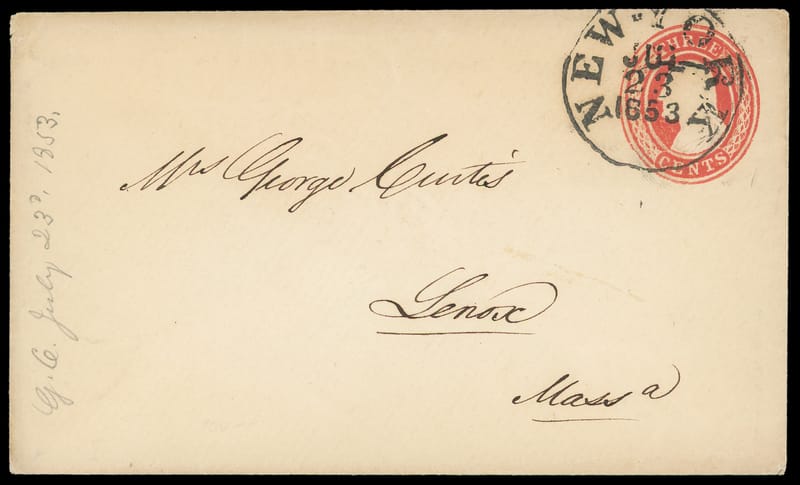 NEW-YORK
JUL
23
1853
THREE
CENTS
Mrs George Curtis
Lenox
Massa
G. C. July 23d, 1853.